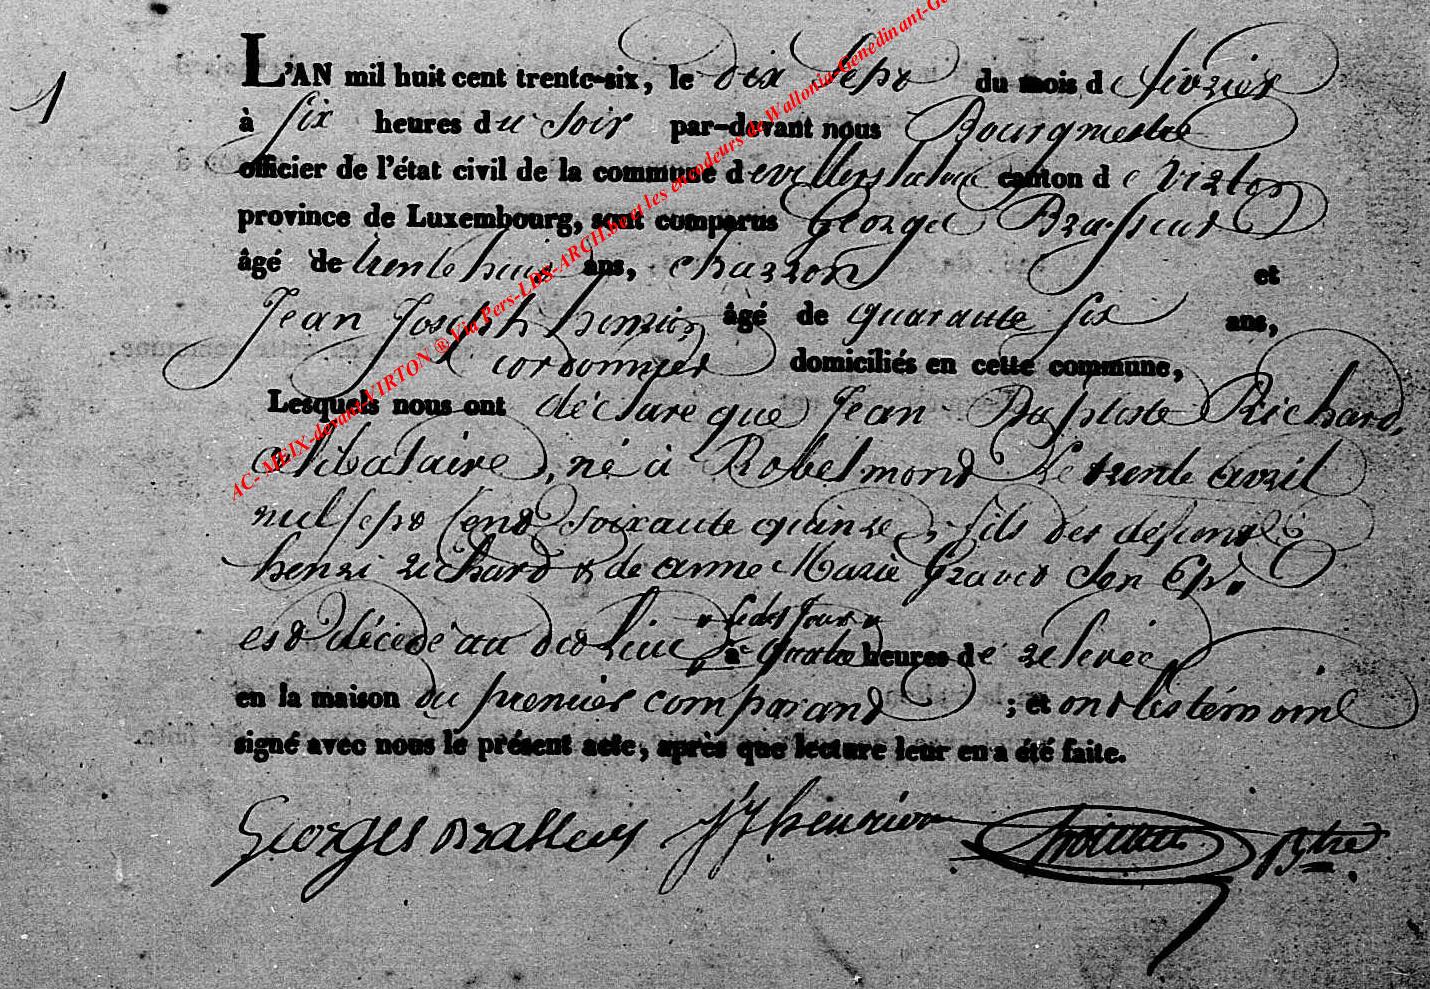 1
L'AN mil huit cent trente-six, le dix sept du mois de fivrier
à six heures du soir par-devant nous Bourgmestre
officier de l'état civil de la commune de villers laloue canton de virton
province de Luxembourg, sont comparus George Brasseur
âgé de trente huit ans, charron et
Jean Joseph henrion âgé de quarante six ans,
cordonnier domiciliés en cette commune,
Lesquels nous ont déclare que Jean Baptiste Richard,
célibataire, né à Robelmont le trente avril
mil sept cent soixante quinze, fils des defunts
henri richard & de anne Marie Gravet son Ep.
est décedé au dit lieu " ledit jour "
à quatre heures de relevée
en la maison du premier comparant ; et ont les témoins
signé avec nous le présent acte, après que lecture leur en a été faite.
Georges Brasseur JJ henrion Btre
AC- MEIX-devant-VIRTON ® Via Pers-LDS-ARCH.be et les encodeurs de Wallonia-Genedinant-Ge